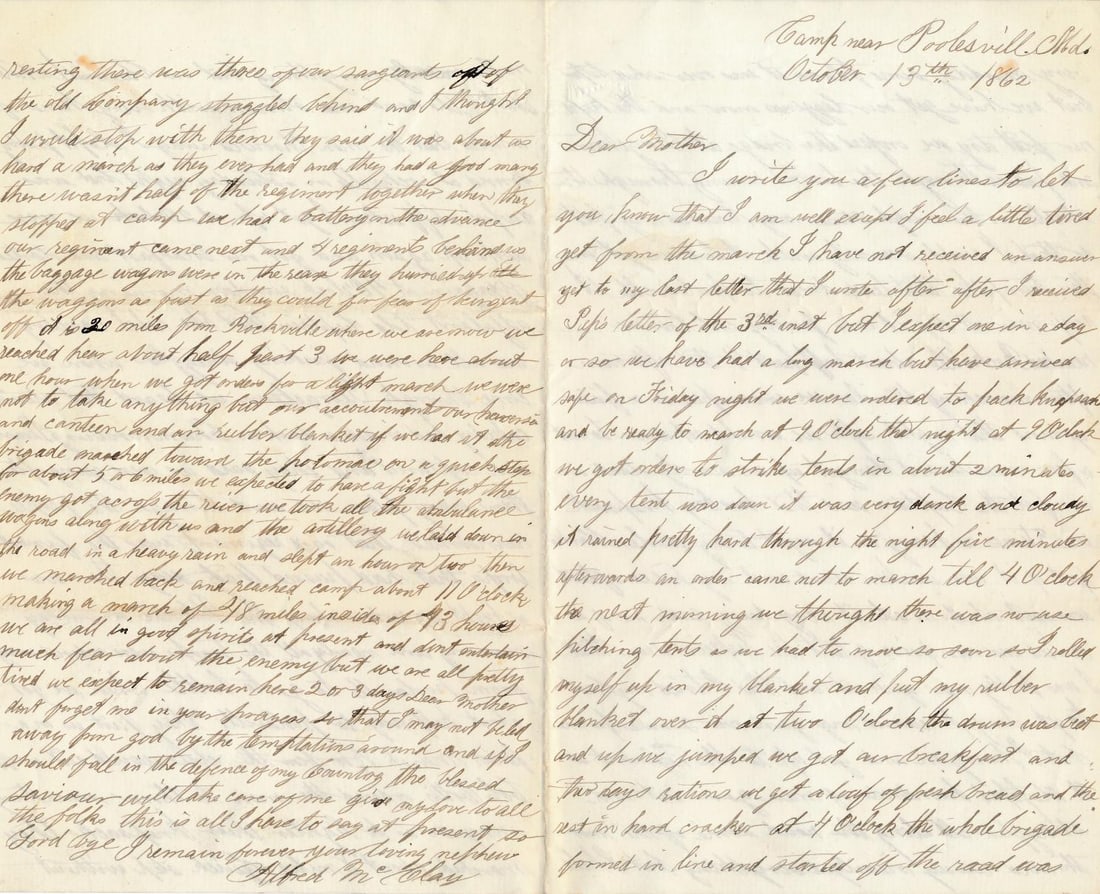 Camp near Poolesvill. Md.
October 13th 1862
Dear Mother
I write you a few lines to let
you know that I am well exept I feel a little tired
yet from the march I have not received an answer
yet to my last letter that I wrote after after I received
Pep's letter of the 3rd inst but I expect one in a day
or so we have had a long march but have arrived
safe on Friday night we were ordered to pack knapsack
and be ready to march at 9 O'clock that night at 9 O'clock
we got orders to strike tents in about 2 minutes
every tent was down it was very darck and cloudy
it rained pretty hard through the night five minutes
afterwards an order came not to march till 4 O'clock
the next morning we thought there was no use
pitching tents as we had to move so soon so I rolled
myself up in my blanket and put my rubber
blanket over it at two O'clock the drum was beat
and up we jumped we got our breakfast and
two days rations we get a loaf of fresh bread and the
rest in hard cracker at 4 O'clock the whole brigade
formed in line and started off the road was
resting there was three of our sargeants of
the old Company straggled behind and I thought
I would stop with them they said it was about as
hard a march as they ever had and they had a good many
there wasn't half of the regiment together when they
stopped at camp we had a battery in the advance
our regiment came next and 4 regiments behind us
the baggage wagons were in the rear they hurried up the
the waggons as fast as they could for fear of being cut
off it is 20 miles from Rockville where we are now we
reached hear about half past 3 we were here about
one hour when we got orders for a light march we were
not to take any thing but our accoutrements our haversa
and canteen and an rubber blanket if we had it the
brigade marched toward the potomac on a quick step
for about 5 or 6 miles we expected to have a fight but the
enemy got across the river we took all the ambulance
wagons along with us and the artillery we laid down in
the road in a heavy rain and slept an hour or two then
we marched back and reached camp about 11 O'clock
making a march of 48 miles inside of 43 hours
we are all in good spirits at present and dont entertain
much fear about the enemy but we are all pretty
tired we expect to remain here 2 or 3 days Dear Mother
dont forget me in your prayers so that I may not be led
away from god by the temptations around and if I
should fall in the defence of my Country the blessed
saviour will take care of me give my love to all
the folks this is all I have to say at present so
Good bye I remain forever your loving nephew
Albed Mc Clay